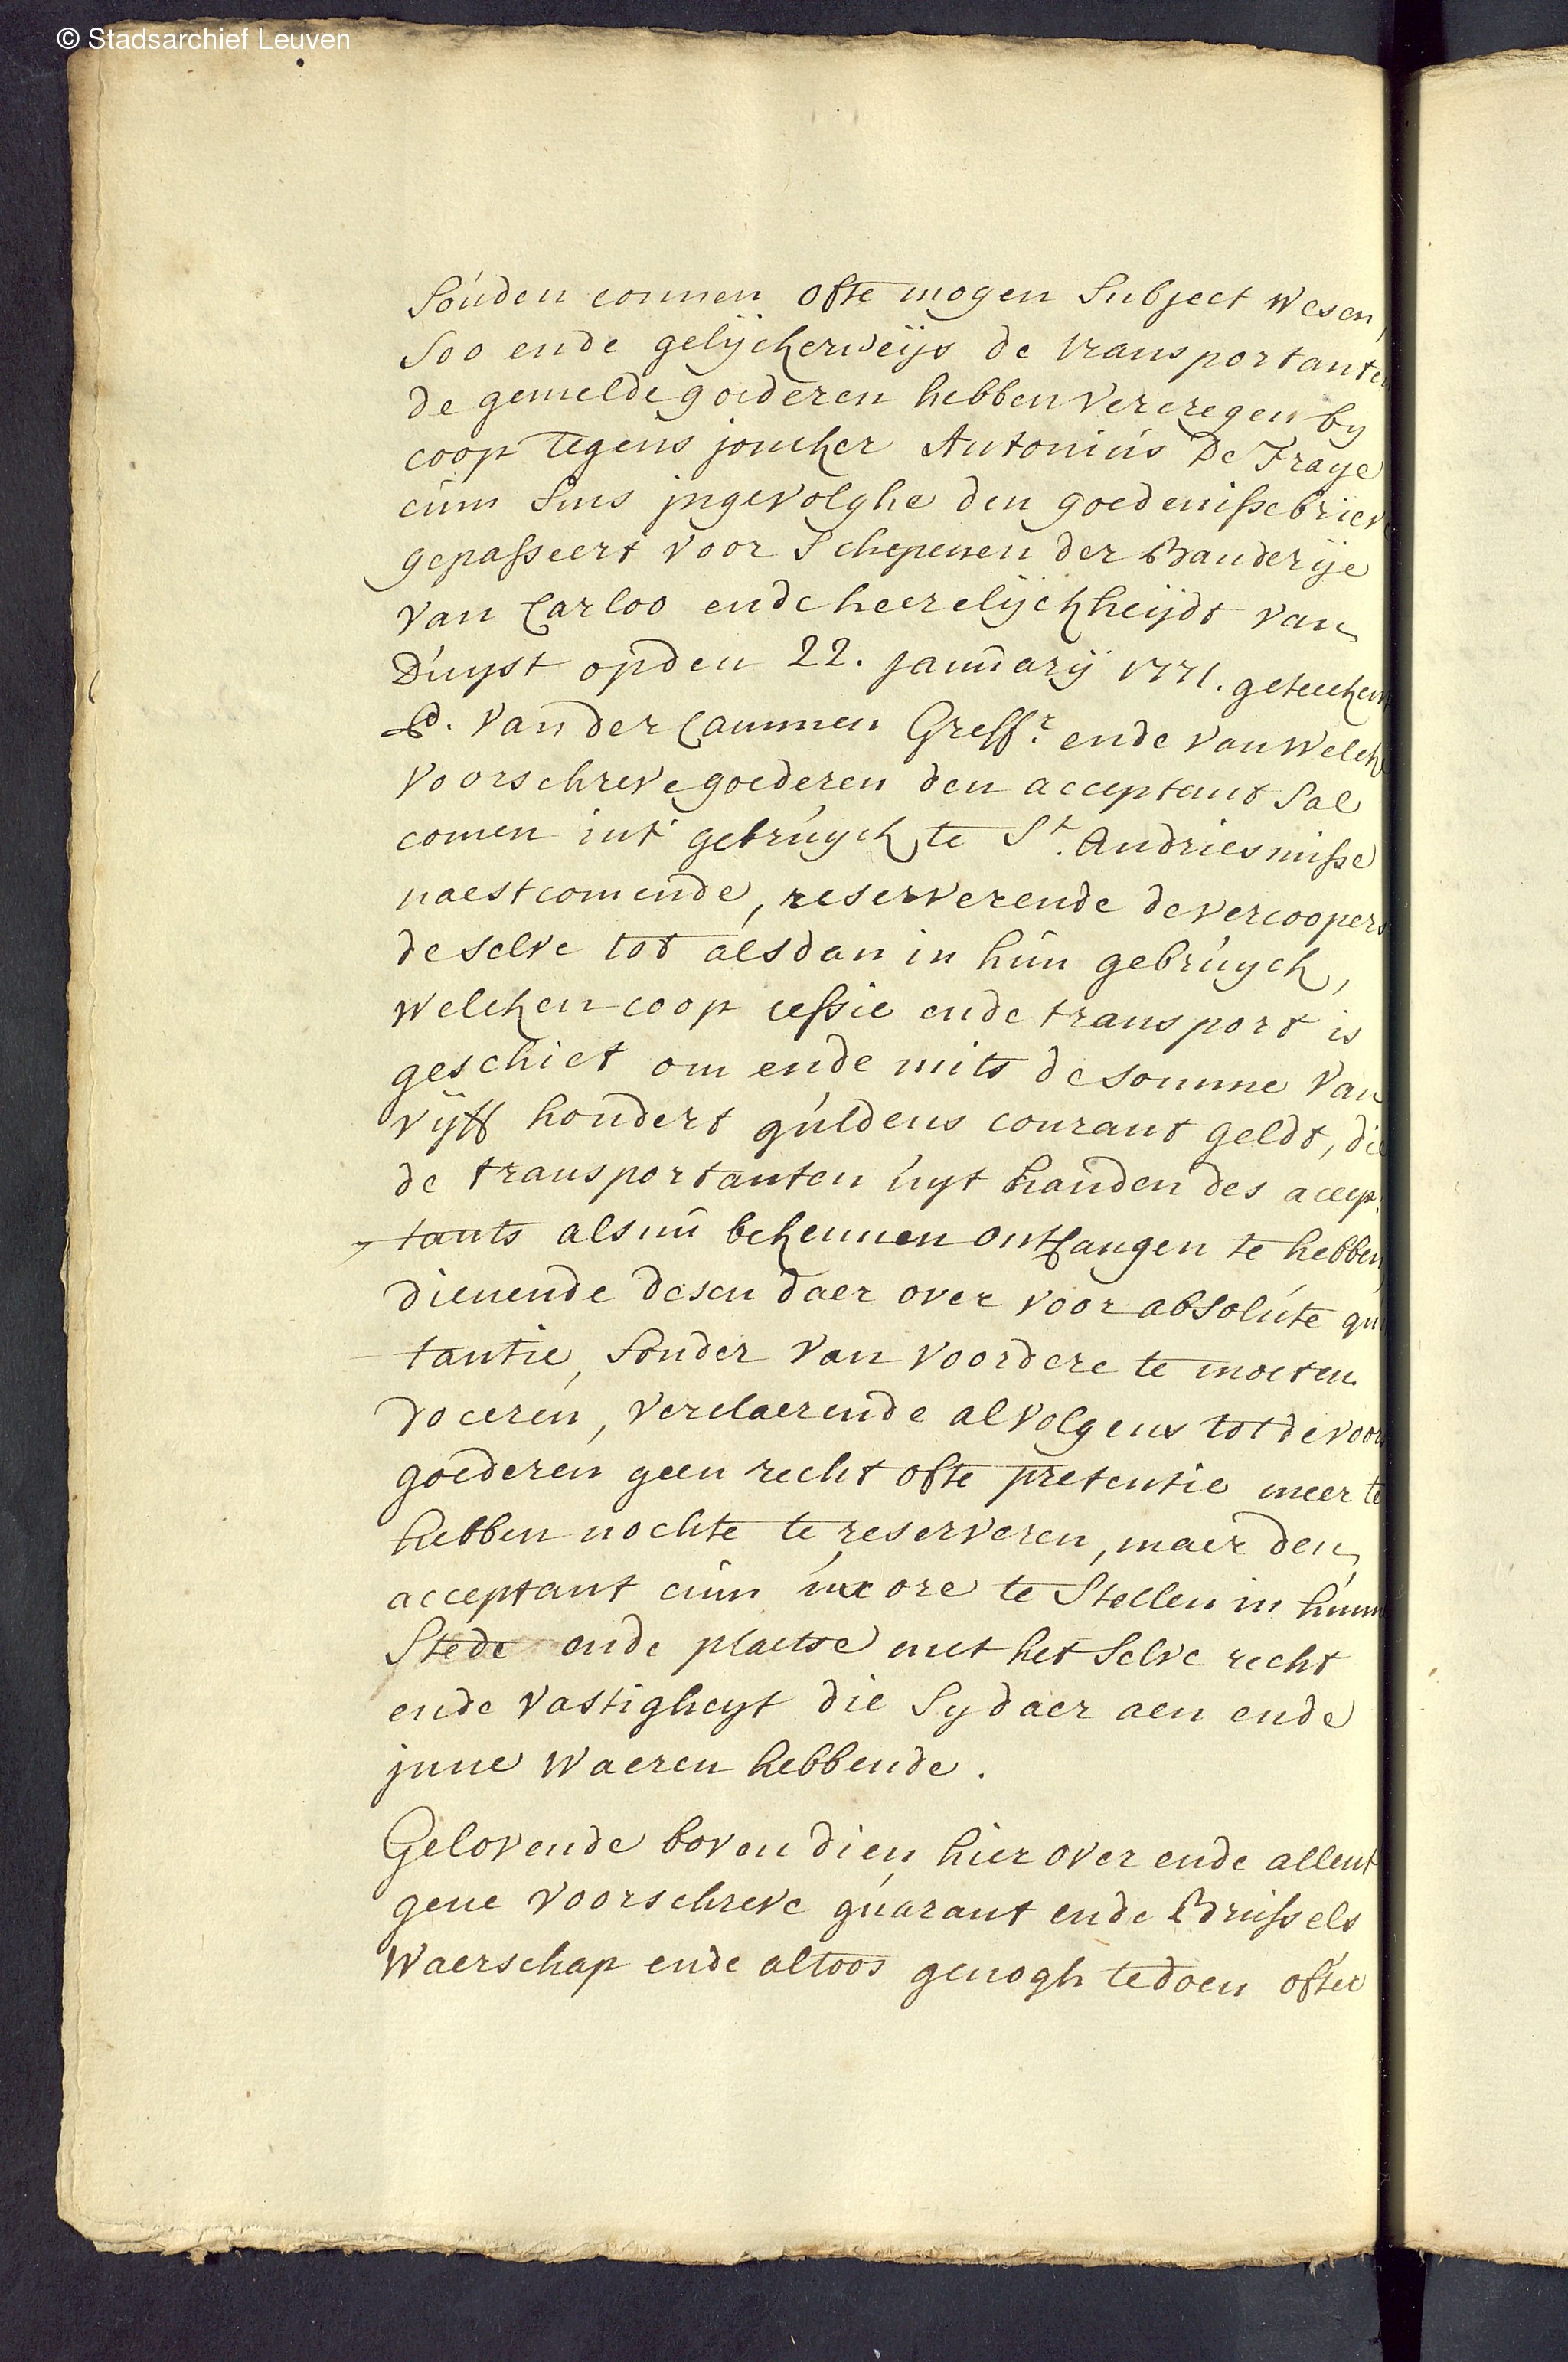 © Stadsarchief Leuven
souden connen ofte mogen subject wesen,
soo ende gelijckerweijs de transportanten
de gemelde goederen hebben vercregen by
coop tegens joncker Antonius De Fraye
cum suis jngevolghe den goedenisse brieve
gepasseert voor schepenen der Banderije
van Carloo ende heerelijckheijdt van
Duyst op den 22. januarij 1771. geteecken
van der Cammen Greffr. ende van welcke
voorschreve goederen den acceptant sal
comen int gebruyck te St. Andriesmisse
naestcomende, reserverende de vercoopers
de selve tot alsdan in hun gebruyck,
welcken coop cessie ende transport is
geschiet om ende mits de somme van
vijff hondert guldens courant geldt, die
de transportanten uyt handen des accep:
tants alsnu bekennen ontfangen te hebben,
dienende desen daer over voor absolute qui
tantie, sonder van voordere te moeten
doceren, verclaerende alvolgens tot de voors
goederen geen recht ofte pretentie meer te
hebben nochte te reserveren, maer den
acceptant cum uxore te stellen in hunne
stede ende plaetse met het selve recht
ende vastigheyt die sy daer aen ende
jnne waeren hebbende.
Gelovende boven dien hier over ende allent
gene voorschreve guarant ende Brussels
waerschap ende altoos genogh te doen ofter